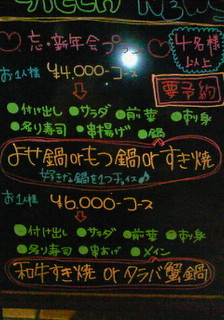 忘・新年会プラン
4名様
以上
お1人様 ¥4,000-コース
要予約
●付け出し ●サラダ ●前菜 ●刺身
●炙り寿司 ●串揚げ ●鍋
よせ鍋orもつ鍋orすき焼
好きな鍋を1つチョイス♪
お1人様
¥6,000-コース
●付け出し ●サラダ ●前菜 ●刺身
●炙り寿司 ●串あげ ●メイン
和牛すき焼 or タラバ蟹鍋